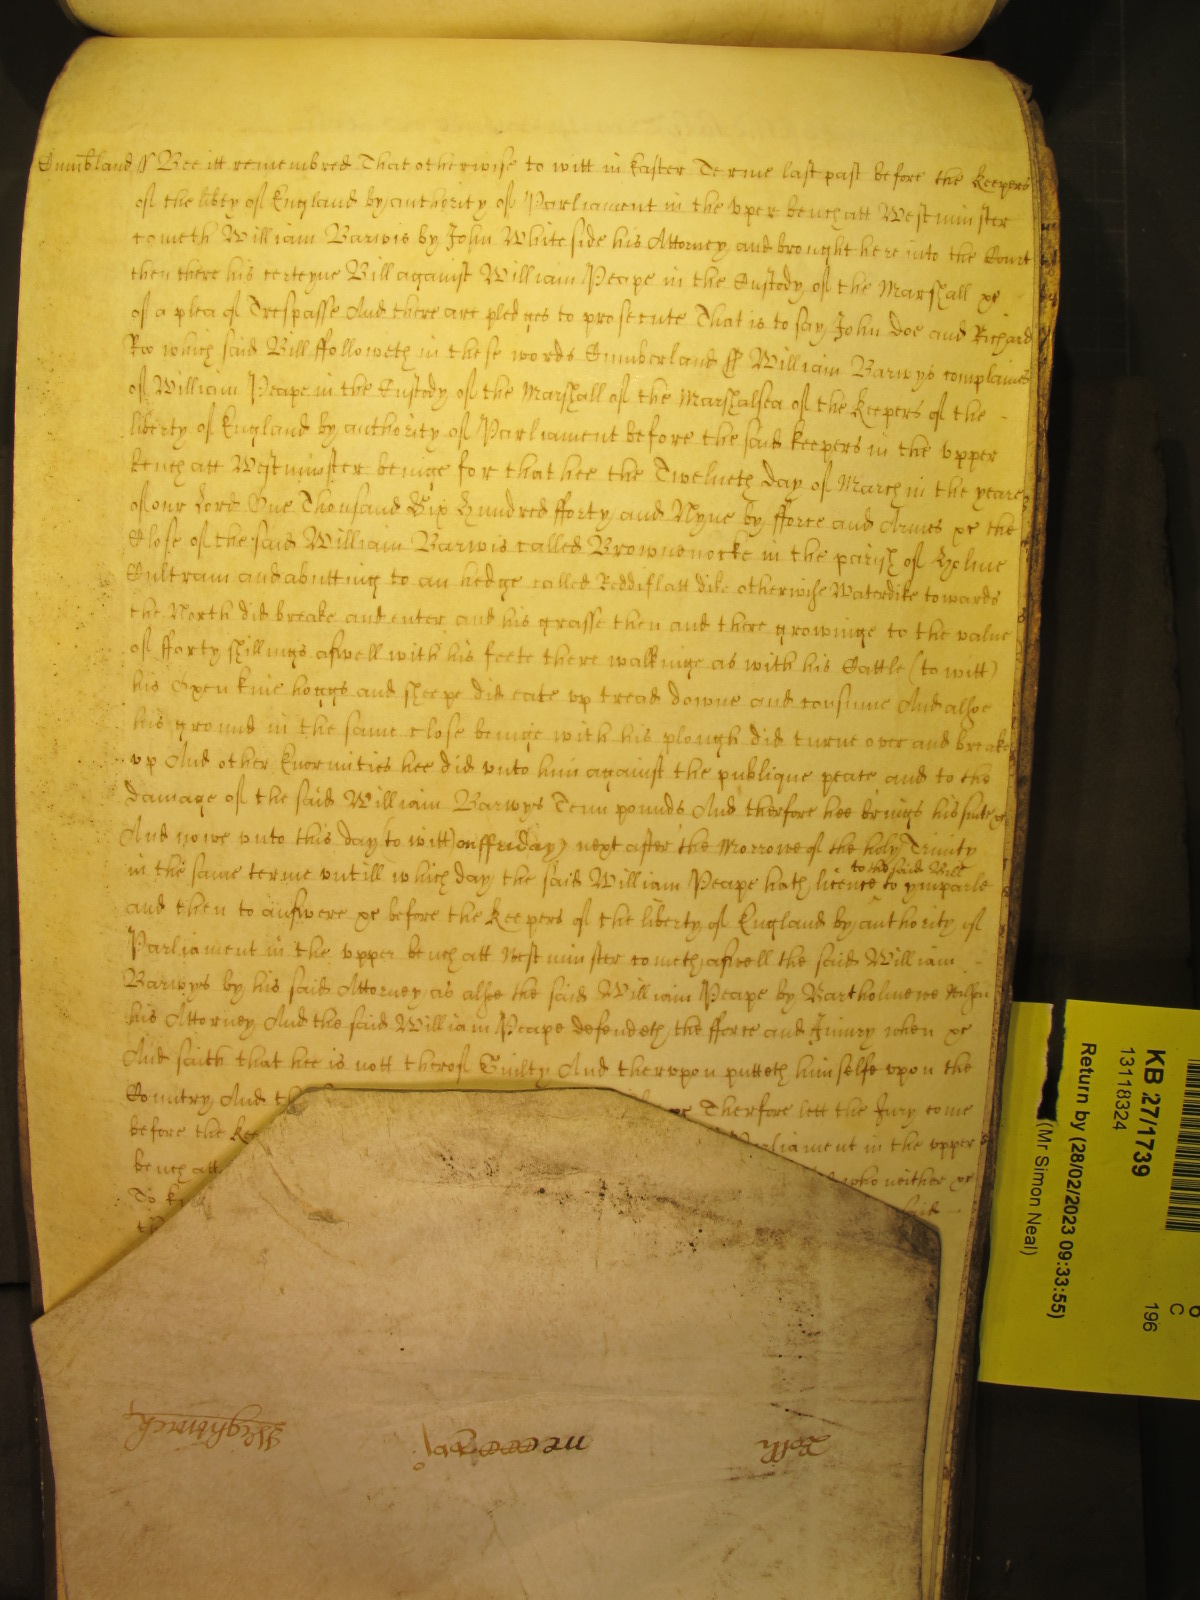 Cumbland ss Bee itt remembred That otherwise to witt in Easter Terme last past before the Keepers
of the libty of England by authority of Parliament in the vper bench att Westminster
cometh William Barwis by John Whiteside his Attorney and brought here into the Court
then there his certeyne Bill against William Peape in the Custody of the Marshall &c
of a plea of Trespasse And there are pledges to prosecute That is to say John Doe and Richard
Roo which said Bill ffolloweth in these words Cumberland ss William Barwys complaines
of William Peape in the Custody of the Marshall of the Marshalsea of the Keepers of the
liberty of England by authority of Parliament before the said keepers in the vpper
bench att Westminster beinge for that hee the Twelueth day of March in the yeare
of our Lord One Thousand Six Hundred fforty and Nyne by fforce and Armes &c the
Close of the said William Barwis called Brownenocke in the parish of Holme
Cultram and abutting to an hedge called Reddiflatt dike otherwise Waterdike towards
the North did breake and enter and his grasse then and there growinge to the value
of fforty shillings aswell with his feete there walkinge as with his Cattle (to witt)
his Oxen kine hoggs and sheepe did eate vp tread downe and consume And alsoe
his ground in the same close beinge with his plough did turne over and breake
vp And other Enormities hee did vnto him against the publique peace and to the
damage of the said William Barwys Tenn pounds And therfore hee brings his suite &c
And nowe vnto this day (to witt) on ffriday next after the Morrowe of the holy Trinity
in the same terme vntill which day the said William Peape hath licence to the said Bill to ymparle
and then to answere &c before the Keepers of the liberty of England by authority of
Parliament in the vpper bench att Westminster cometh aswell the said William
Barwys by his said Attorney as alsoe the said William Peape by Bartholmewe
his Attorney And the said William Peape defendeth the fforce and Iniury when &c
And saith that hee is nott therof Guilty And thervpon putteth himselfe vpon the
Country And Therfore lett the Jury come
before the Parliament in the vpper
bench att who neither &c
To
KB 27/1739
13118324
Return by (28/02/2023 09:33:55)
(Mr Simon Neal)
C
196